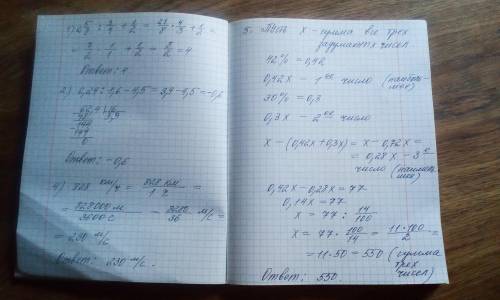 1) 2 5/8 : 3/4 + 1/2 = 21/8 · 4/3 + 1/2 =
= 7/2 · 1/1 + 1/2 =
= 4
Ответ: 4
2) 
Ответ: -0,6
4) 828 км/ч = 828 км / 1 ч =
= 828000 м / 3600 с = 8280/36 м/с =
= 230 м/с
Ответ: 230 м/с.
5. Пусть x - сумма все трех
задуманных чисел
42% = 0,42
0,42x - 1ое число
30% = 0,3
0,3x - 2ое число
x - (0,42x + 0,3x) = x - 0,72x =
= 0,28x - 3е
число
0,42x - 0,28x = 77
0,14x = 77
x = 77 : 14/100
x = 77 · 100/14 = 11·100/2 =
= 11·50 = 550 (сумма
трех
чисел)
Ответ: 550.